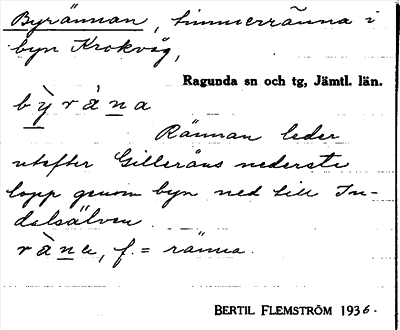 Byrännan, timmerränna i
byn Krokvåg,
Ragunda sn och tg, Jämtl. län.
bỳ̲rà̲na
Rännan leder
utefter Gilleråns nedersta
lopp genom byn ned till In-
dalsälven.
rà̲na, f. = ränna.
BERTIL FLEMSTRÖM 1936.